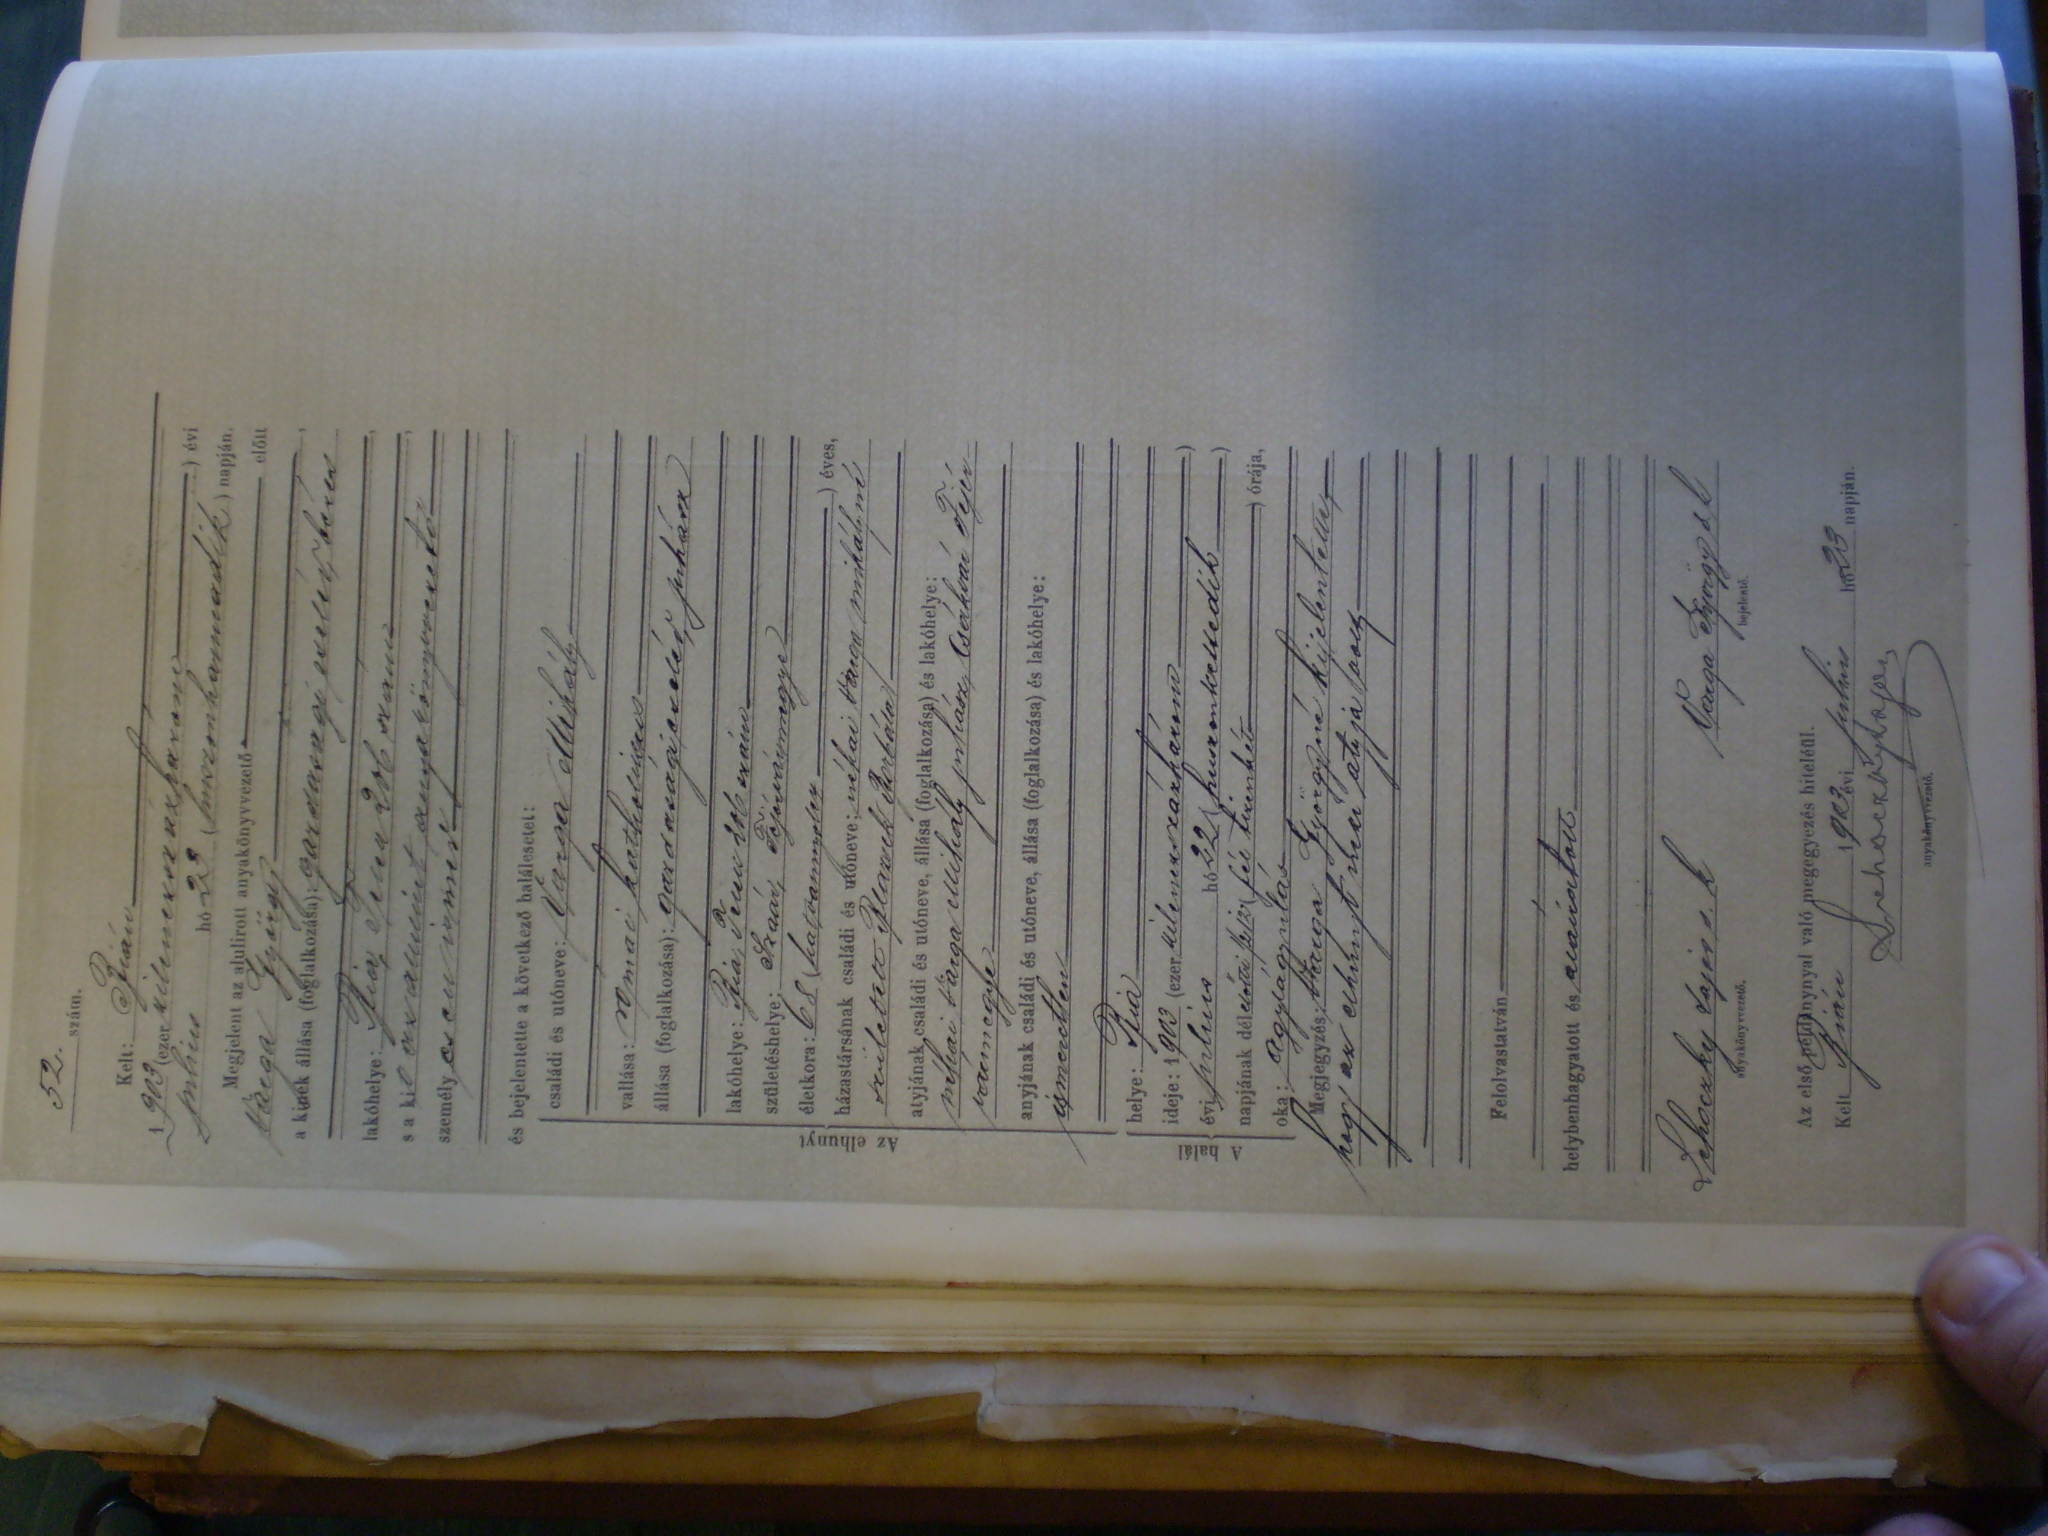 52. szám.
Kelt: Bián
1903 (ezer kilenczszázhárom) évi
julius hó 23 (huszonharmadik) napján.
Megjelent az alulirott anyakönyvvezető előtt
Varga György
a kinek állása (foglalkozása): gazdasági cseléd, béres
lakóhelye: Bia,
s a kit anyakönyvvezető
személy
és bejelentette a következő halálesetet:
Az elhunyt
családi és utóneve: Varga Mihály
vallása: római katholikus
állása (foglalkozása): gazdasági cseléd, juhász
lakóhelye: Bia,
születéshelye: Szaár, Fejérmegye
életkora: 68 (hatvannyolcz) éves,
házastársának családi és utóneve: néhai Varga Mihályné
született Borbála
atyjának családi és utóneve, állása (foglalkozása) és lakóhelye:
néhai Varga Mihály juhász, Csákvár Fejér
vármegye
anyjának családi és utóneve, állása (foglalkozása) és lakóhelye:
ismeretlen
A halál
helye: Bia
ideje: 1903 (ezer kilenczszázhárom)
évi julius hó 22 (huszonkettedik)
napjának délelőtti órája,
oka:
Megjegyzés: Varga Györgyné kijelentette,
hogy az elhunyt neki atyja volt
Felolvastatván
helybenhagyatott és aláiratott
Lehoczky Lajos s. k
anyakönyvvezető.
Varga György s k
bejelentő.
Az első példánynyal való megegyezés hiteléül.
Kelt Bián 1903 évi julius hó 23 napján.
Lehoczky Lajos
anyakönyvvezető.